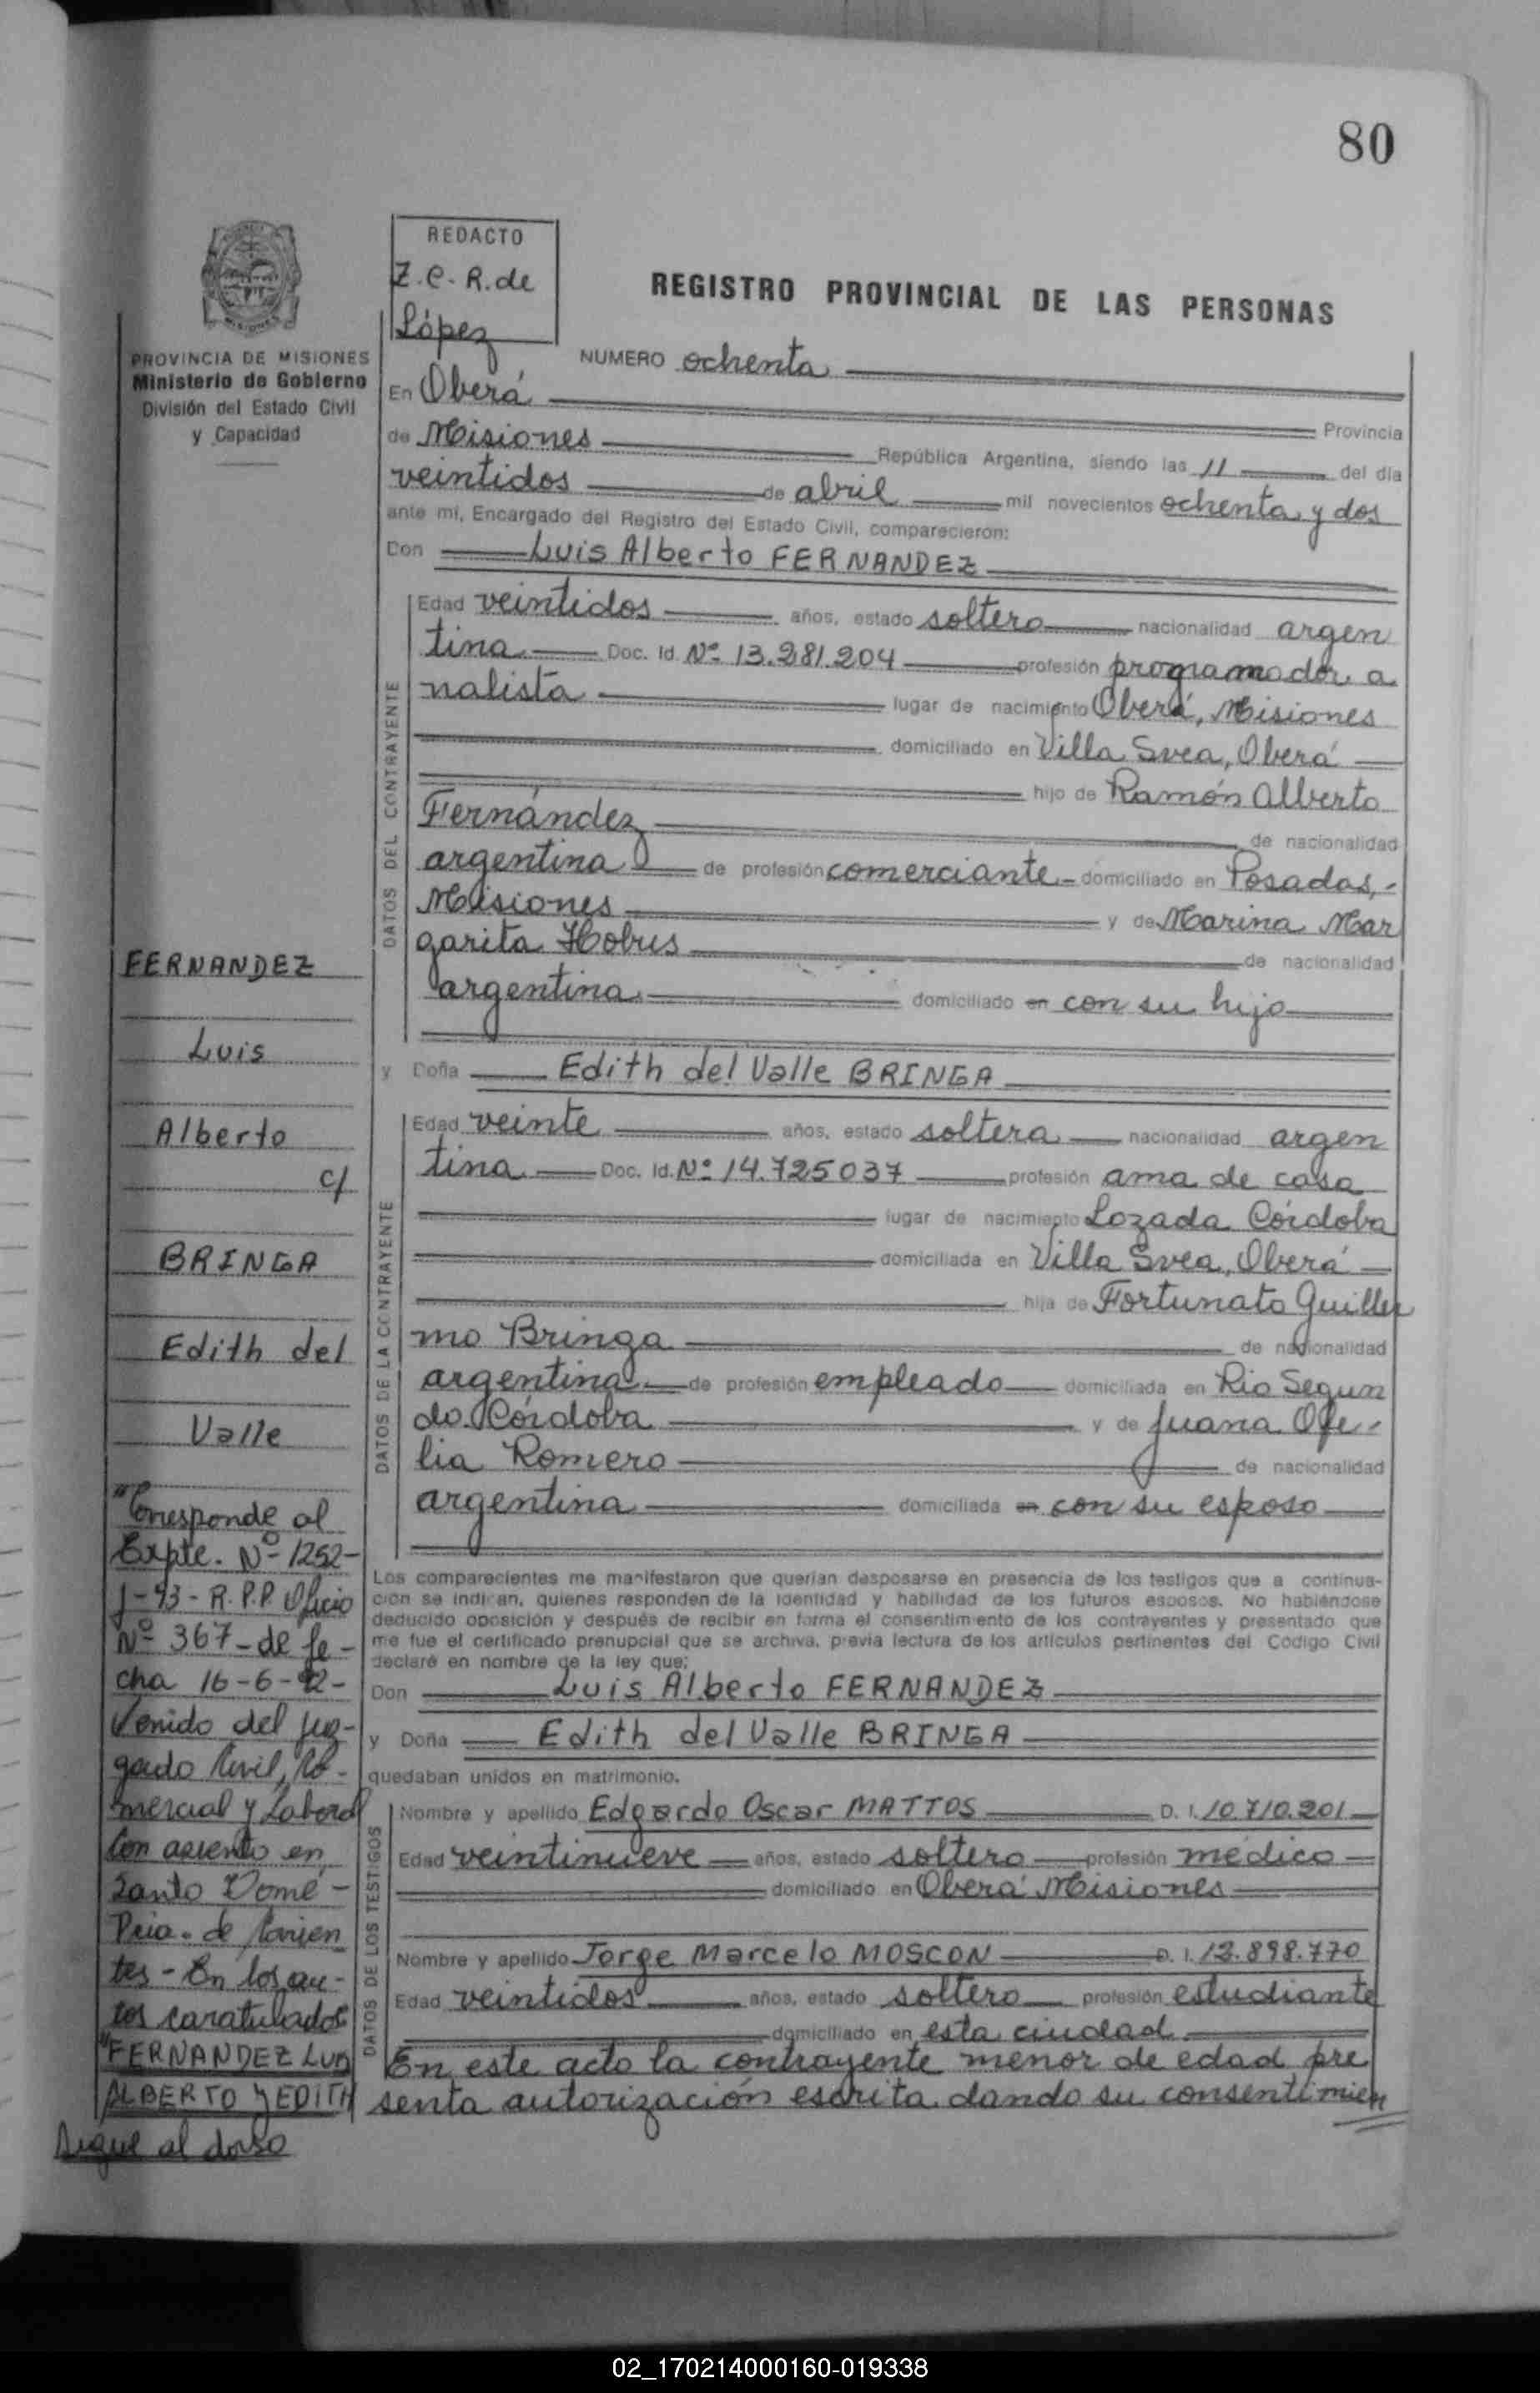 80
REDACTO
Z.C.R. de
López
REGISTRO PROVINCIAL DE LAS PERSONAS
PROVINCIA DE MISIONES
Ministerio de Gobierno
División del Estado Civil
y Capacidad
NUMERO ochenta
En Oberá Provincia
de Misiones República Argentina, siendo las 11 del día
veintidos de abril mil novecientos ochenta y dos
ante mí, Encargado del Registro del Estado Civil, comparecieron:
Don Luis Alberto FERNANDEZ
DATOS DEL CONTRAYENTE
Edad veintidos años, estado soltero nacionalidad argen
tina Doc. Id. Nº 13.281.204 profesión programador a
nalista lugar de nacimiento Oberá, Misiones
domiciliado en Villa Svea, Oberá
hijo de Ramón Alberto
Fernández de nacionalidad
argentina de profesión comerciante domiciliado en Posadas,-
Misiones y de Marina Mar
garita Hobus de nacionalidad
argentina domiciliado en con su hijo
y Doña Edith del Valle BRINGA
DATOS DE LA CONTRAYENTE
Edad veinte años, estado soltera nacionalidad argen
tina Doc. Id. Nº 14.725037 profesión ama de casa
lugar de nacimiento Lozada Córdoba
domiciliada en Villa Svea, Oberá
hija de Fortunato Guiller
mo Bringa de nacionalidad
argentina de profesión empleado domiciliada en Rio Segun
do Córdoba y de Juana Ofe-
lia Romero de nacionalidad
argentina domiciliada en con su esposo
Los comparecientes me manifestaron que querían desposarse en presencia de los testigos que a continua-
ción se indican, quienes responden de la identidad y habilidad de los futuros esposos. No habiéndose
deducido oposición y después de recibir en forma el consentimiento de los contrayentes y presentado que
me fue el certificado prenupcial que se archiva, previa lectura de los artículos pertinentes del Código Civil
declaré en nombre de la ley que:
Don Luis Alberto FERNANDEZ
y Doña Edith del Valle BRINGA
quedaban unidos en matrimonio.
DATOS DE LOS TESTIGOS
Nombre y apellido Edgardo Oscar MATTOS D. I. 10.710.201
Edad veintinueve años, estado soltero profesión médico
domiciliado en Oberá Misiones
Nombre y apellido Jorge Marcelo MOSCON D. I. 12.898.770
Edad veintidos años, estado soltero profesión estudiante
domiciliado en esta ciudad
En este acto la contrayente menor de edad pre
senta autorización escrita dando su consentimien
FERNANDEZ
Luis
Alberto
c/
BRINGA
Edith del
Valle
"Corresponde al
Expte. Nº 1252-
J-93-R.P.P. Oficio
Nº 367-de fe-
cha 16-6-92-
Venido del Juz-
gado Civil, Co-
mercial y Laboral
Con asiento en
Santo Tomé-
Pcia. de Corrien
tes- En los au-
tos caratulados
"FERNANDEZ LUIS
ALBERTO Y EDITH
Sigue al dorso
02_170214000160-019338